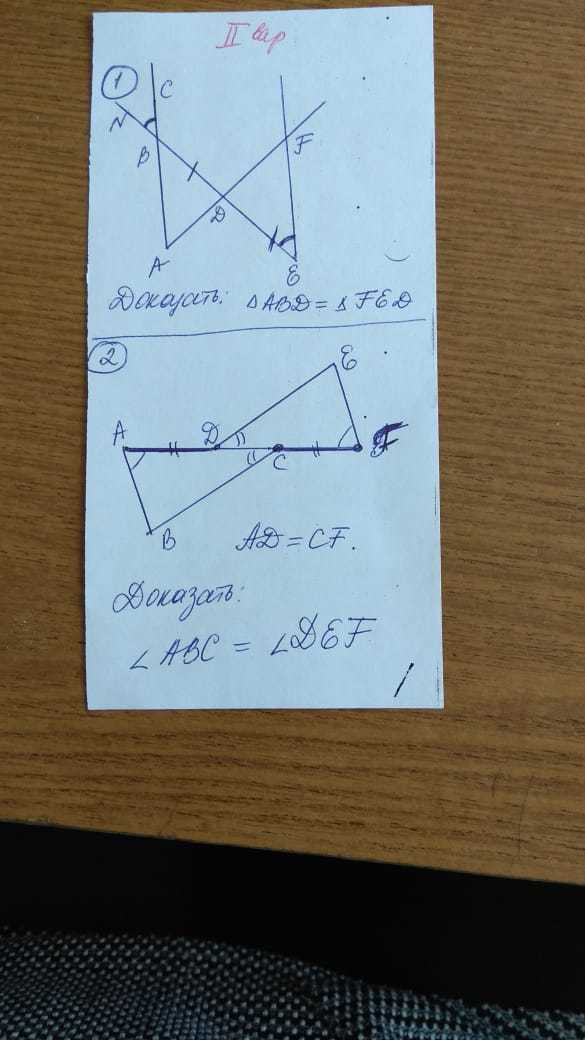 II вар
1
C
N
B
F
D
A
E
Доказать: △ABD = △FED
2
E
A
D
F
C
B
AD = CF.
Доказать:
∠ABC = ∠DEF